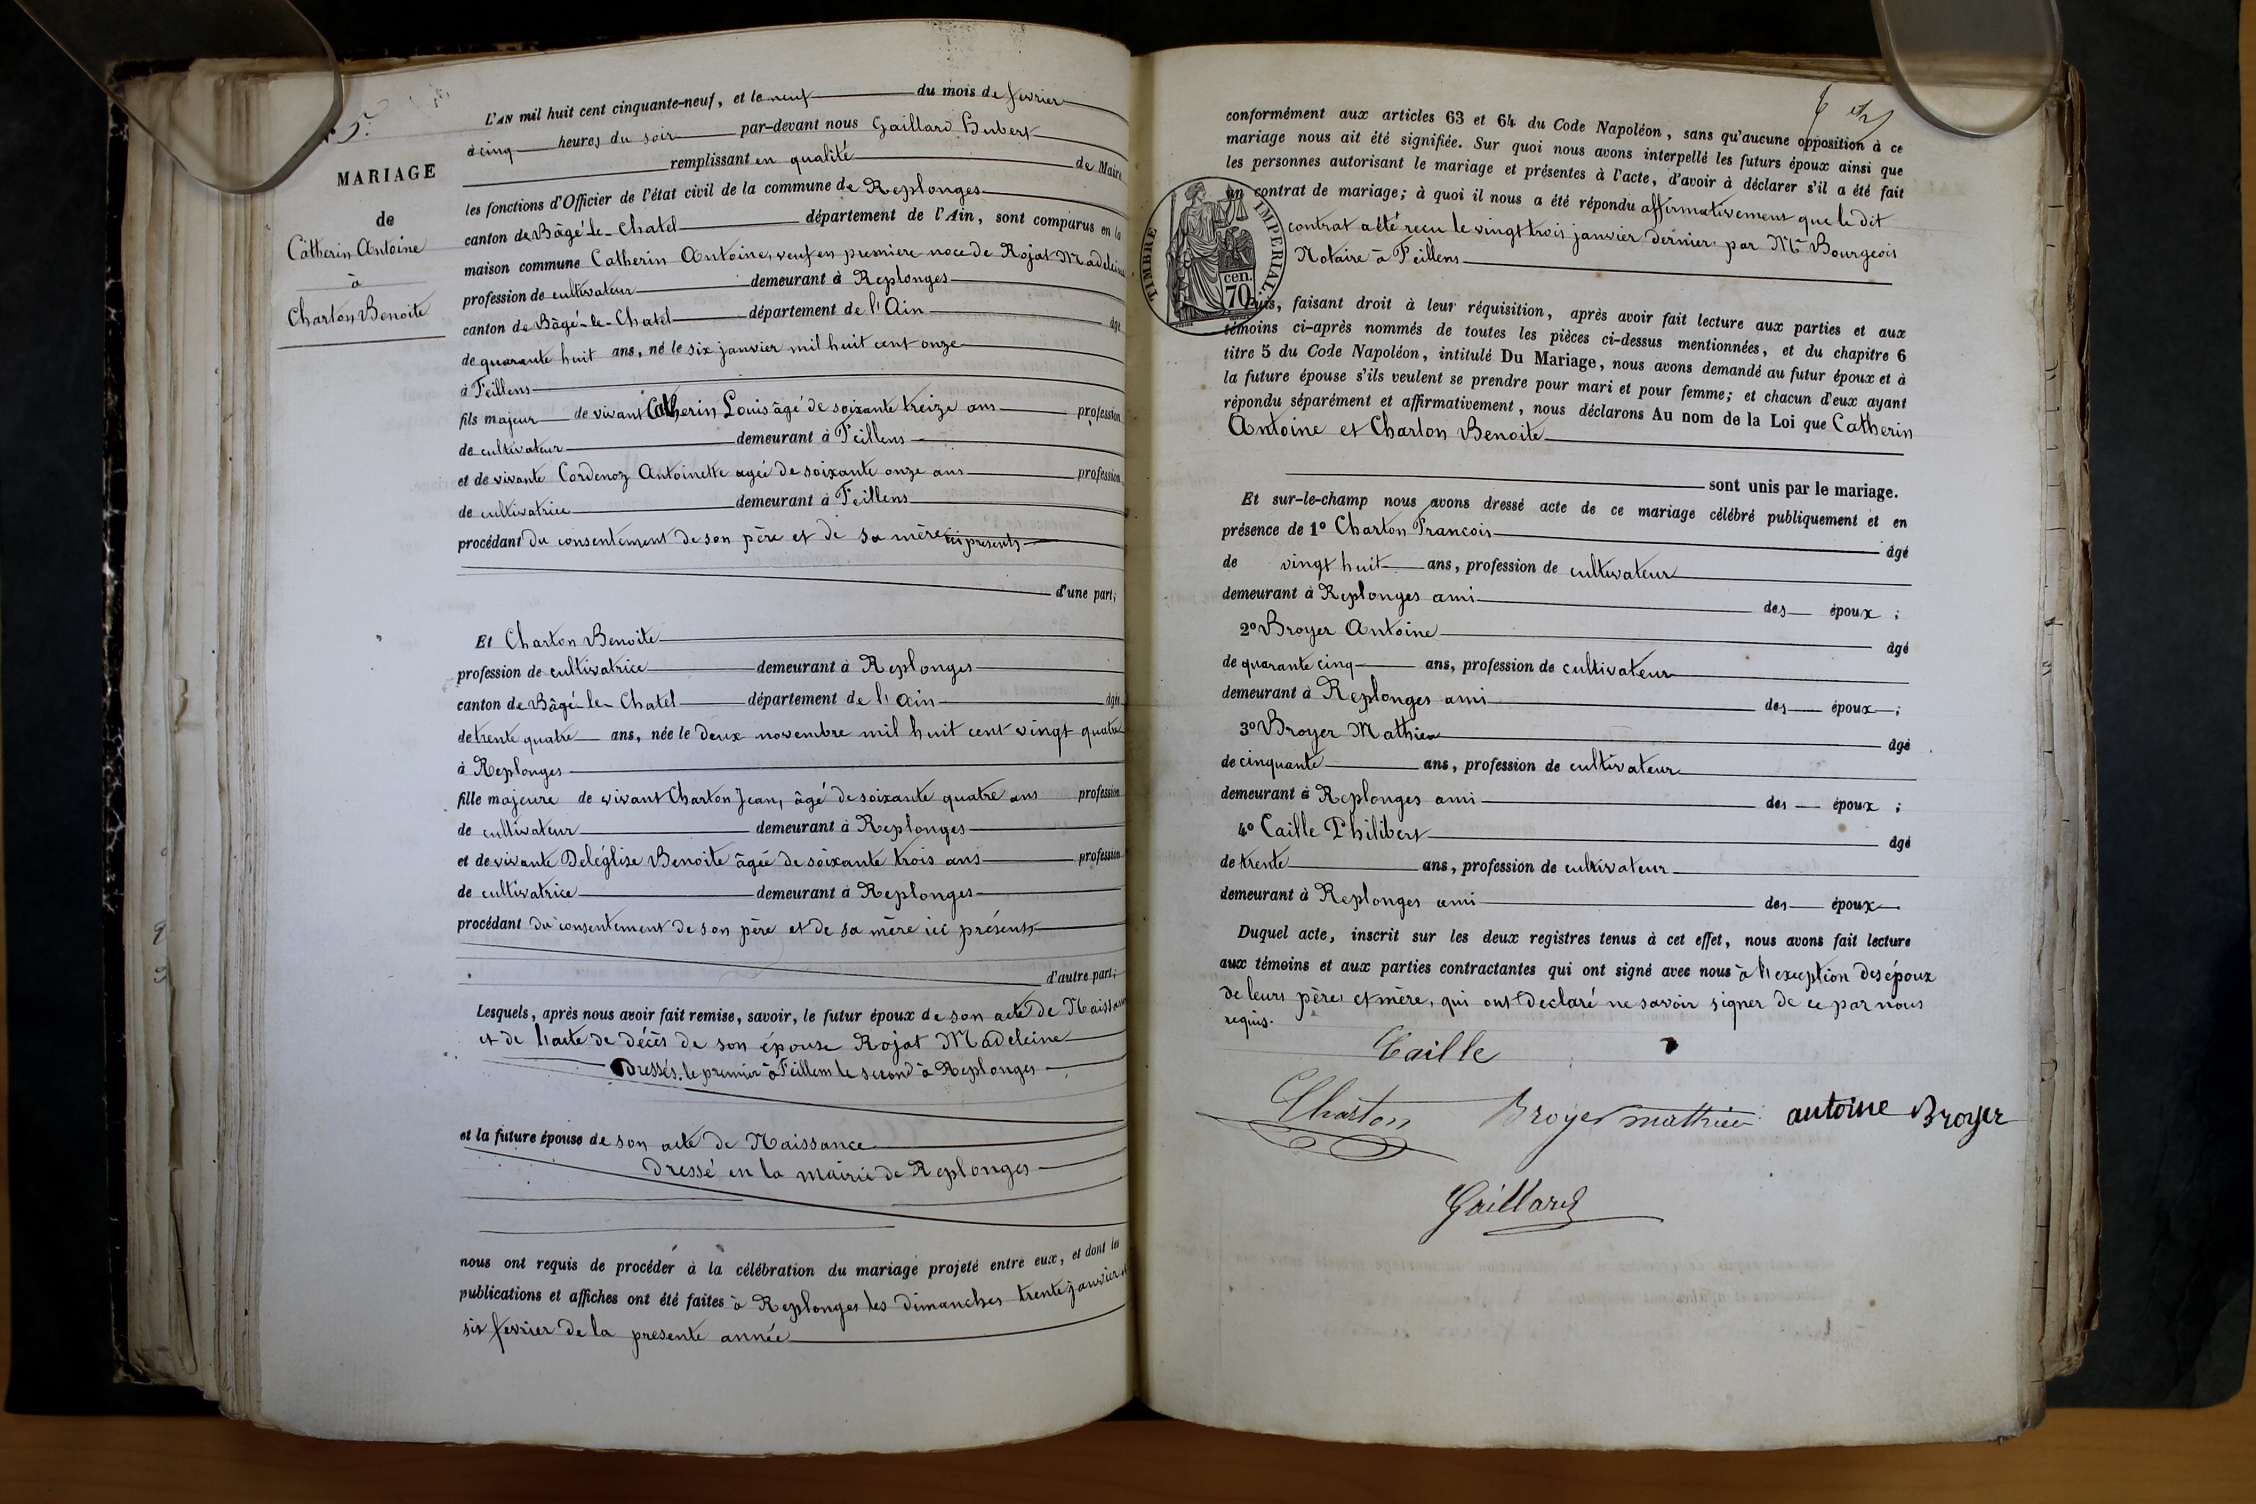 5.
MARIAGE
de
Catherin Antoine
à
Charton Benoite
L'AN mil huit cent cinquante-neuf, et le neuf du mois de fevrier
à cinq heures du soir par-devant nous Gaillard Hubert
remplissant en qualité de Maire
les fonctions d'Officier de l'état civil de la commune de Replonges
canton de Bâgé-le-Chatel département de l'Ain, sont comparus en la
maison commune Catherin Antoine, veuf en premiere noce de Rojat Madeleine
profession de cultivateur demeurant à Replonges
canton de Bâgé-le-Chatel département de l'Ain âgé
de quarante huit ans, né le six janvier mil huit cent onze
à Feillens
fils majeur de vivant Catherin Louis âgé de soixante treize ans profession
de cultivateur demeurant à Feillens
et de vivante Cordenoz Antoinette agée de soixante onze ans profession
de cultivatrice demeurant à Feillens
procédant du consentement de son père et de sa mère ici présents
d'une part;
Et Charton Benoite
profession de cultivatrice demeurant à Replonges
canton de Bâgé-le-Chatel département de l'Ain âgée
de trente quatre ans, née le deux novembre mil huit cent vingt quatre
à Replonges
fille majeure de vivant Charton Jean, âgé de soixante quatre ans profession
de cultivateur demeurant à Replonges
et de vivante Deléglise Benoite âgée de soixante trois ans profession
de cultivatrice demeurant à Replonges
procédant du consentement de son père et de sa mère ici présents
d'autre part;
Lesquels, après nous avoir fait remise, savoir, le futur époux de son acte de Naissance
et de l'acte de décès de son épouse Rojat Madeleine
Dressés, le premier à Feillens le second à Replonges
et la future épouse de son acte de Naissance
Dressé en la mairie de Replonges
nous ont requis de procéder à la célébration du mariage projeté entre eux, et dont les
publications et affiches ont été faites à Replonges les dimanches trente janvier et
six fevrier de la presente année
conformément aux articles 63 et 64 du Code Napoléon, sans qu'aucune opposition à ce
mariage nous ait été signifiée. Sur quoi nous avons interpellé les futurs époux ainsi que
les personnes autorisant le mariage et présentes à l'acte, d'avoir à déclarer s'il a été fait
un contrat de mariage; à quoi il nous a été répondu affirmativement que le dit
contrat a été reçu le vingt trois janvier dernier par Me Bourgeois
Notaire à Feillens
TIMBRE IMPERIAL
70 cen.
Puis, faisant droit à leur réquisition, après avoir fait lecture aux parties et aux
témoins ci-après nommés de toutes les pièces ci-dessus mentionnées, et du chapitre 6
titre 5 du Code Napoléon, intitulé Du Mariage, nous avons demandé au futur époux et à
la future épouse s'ils veulent se prendre pour mari et pour femme; et chacun d'eux ayant
répondu séparément et affirmativement, nous déclarons Au nom de la Loi que Catherin
Antoine et Charton Benoite
sont unis par le mariage.
Et sur-le-champ nous avons dressé acte de ce mariage célébré publiquement et en
présence de 1o Charton Francois âgé
de vingt huit ans, profession de cultivateur
demeurant à Replonges ami des époux ;
2o Broyer Antoine âgé
de quarante cinq ans, profession de cultivateur
demeurant à Replonges ami des époux ;
3o Broyer Mathieu âgé
de cinquante ans, profession de cultivateur
demeurant à Replonges ami des époux ;
4o Caille Philibert âgé
de trente ans, profession de cultivateur
demeurant à Replonges ami des époux
Duquel acte, inscrit sur les deux registres tenus à cet effet, nous avons fait lecture
aux témoins et aux parties contractantes qui ont signé avec nous à l'exception des époux
de leurs pères et mère, qui ont declaré ne savoir signer de ce par nous
requis.
Caille
Charton Broyer mathieu antoine Broyer
Gaillard